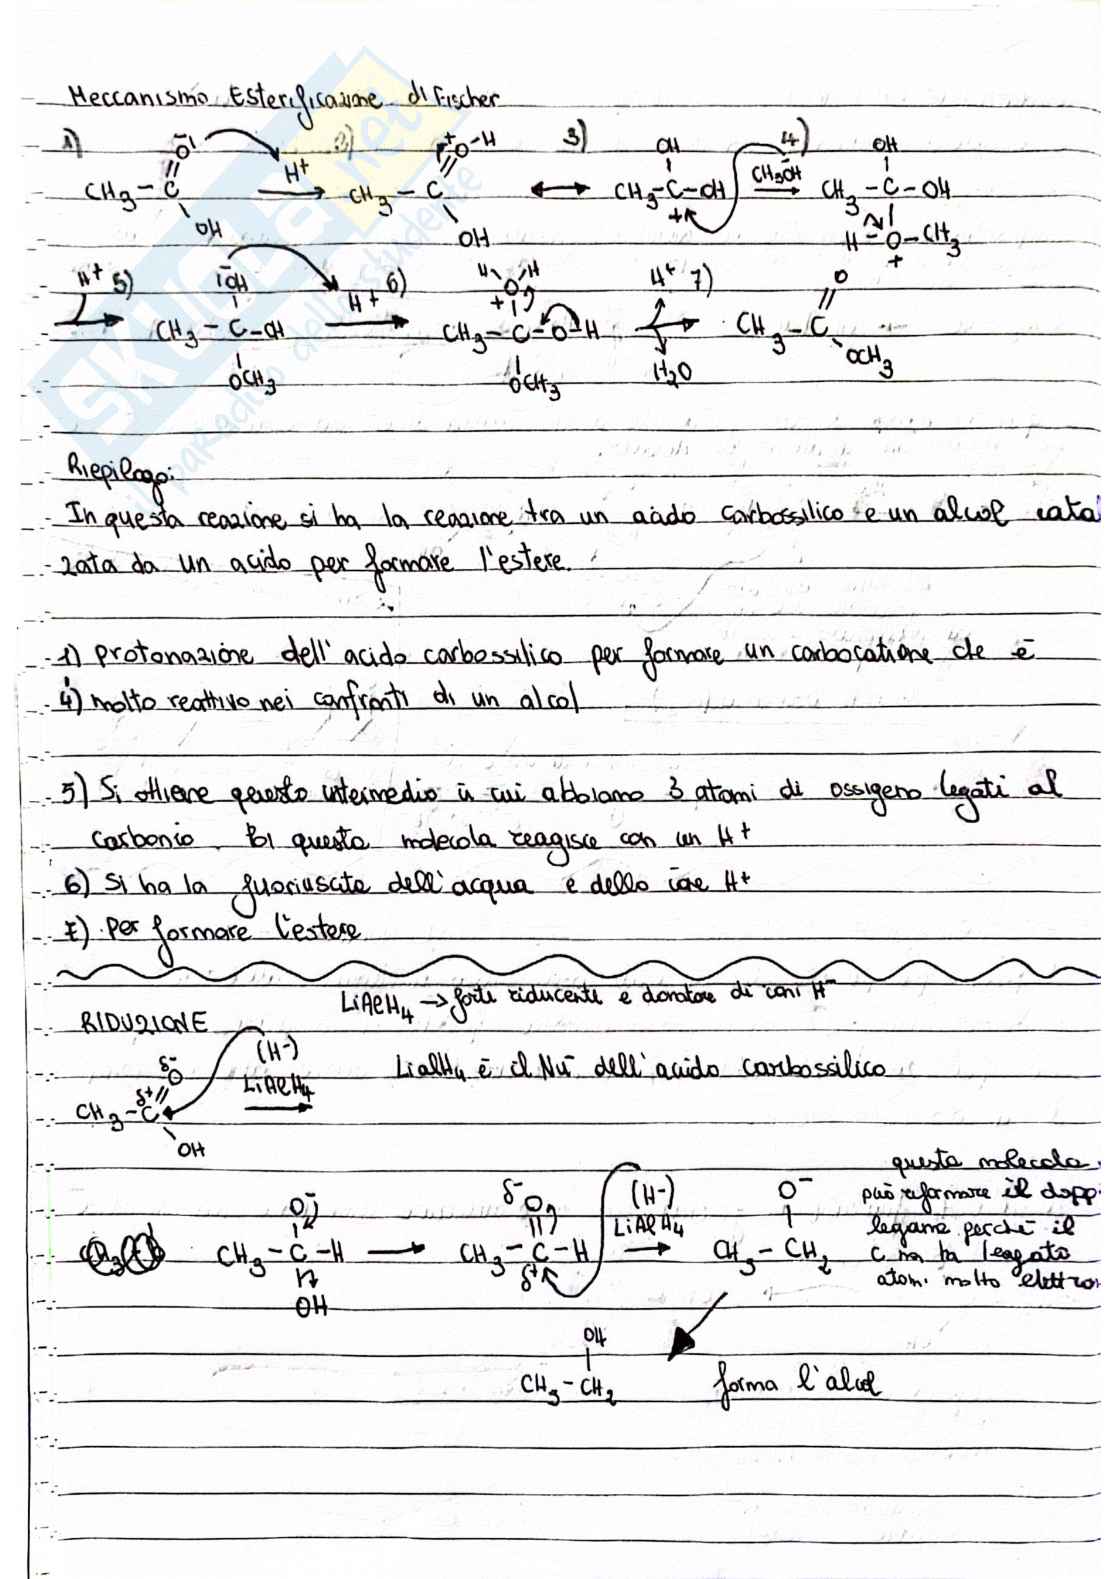 Meccanismo Esterificazione di Fischer
1) 2) 3) 4)
O H+ O-H OH CH3OH OH
CH3-C CH3-C CH3-C-OH CH3-C-OH
OH OH + H-O-CH3
+
H+ 5) OH H+ 6) H O H H+ 7) O
CH3-C-OH CH3-C-O-H CH3-C
OCH3 OCH3 H2O OCH3
Riepilogo:
In questa reazione si ha la reazione tra un acido carbossilico e un alcol cata
zata da un acido per formare l'estere.
1) protonazione dell'acido carbossilico per formare un carbocatione che è
4) molto reattivo nei confronti di un alcol
5) Si ottiene questo intermedio in cui abbiamo 3 atomi di ossigeno legati al
carbonio. Poi questa molecola reagisce con un H+
6) Si ha la fuoriuscita dell'acqua e dello ione H+
7) Per formare l'estere
LiAlH4 → forte riducente e donatore di ioni H-
RIDUZIONE
δ- O (H-) LiAlH4 è il Nu- dell'acido carbossilico
CH3-C δ+ LiAlH4
OH
questa molecola
O- δ- O (H-) O- può riformare il dopp
LiAlH4 legame perché il
CH3-C-H → CH3-C-H → CH3-CH2 C non ha legato
OH δ+ atomi molto elettron
OH
CH3-CH2 forma l'alcol
SKUOLA.net
il paradiso dello studente